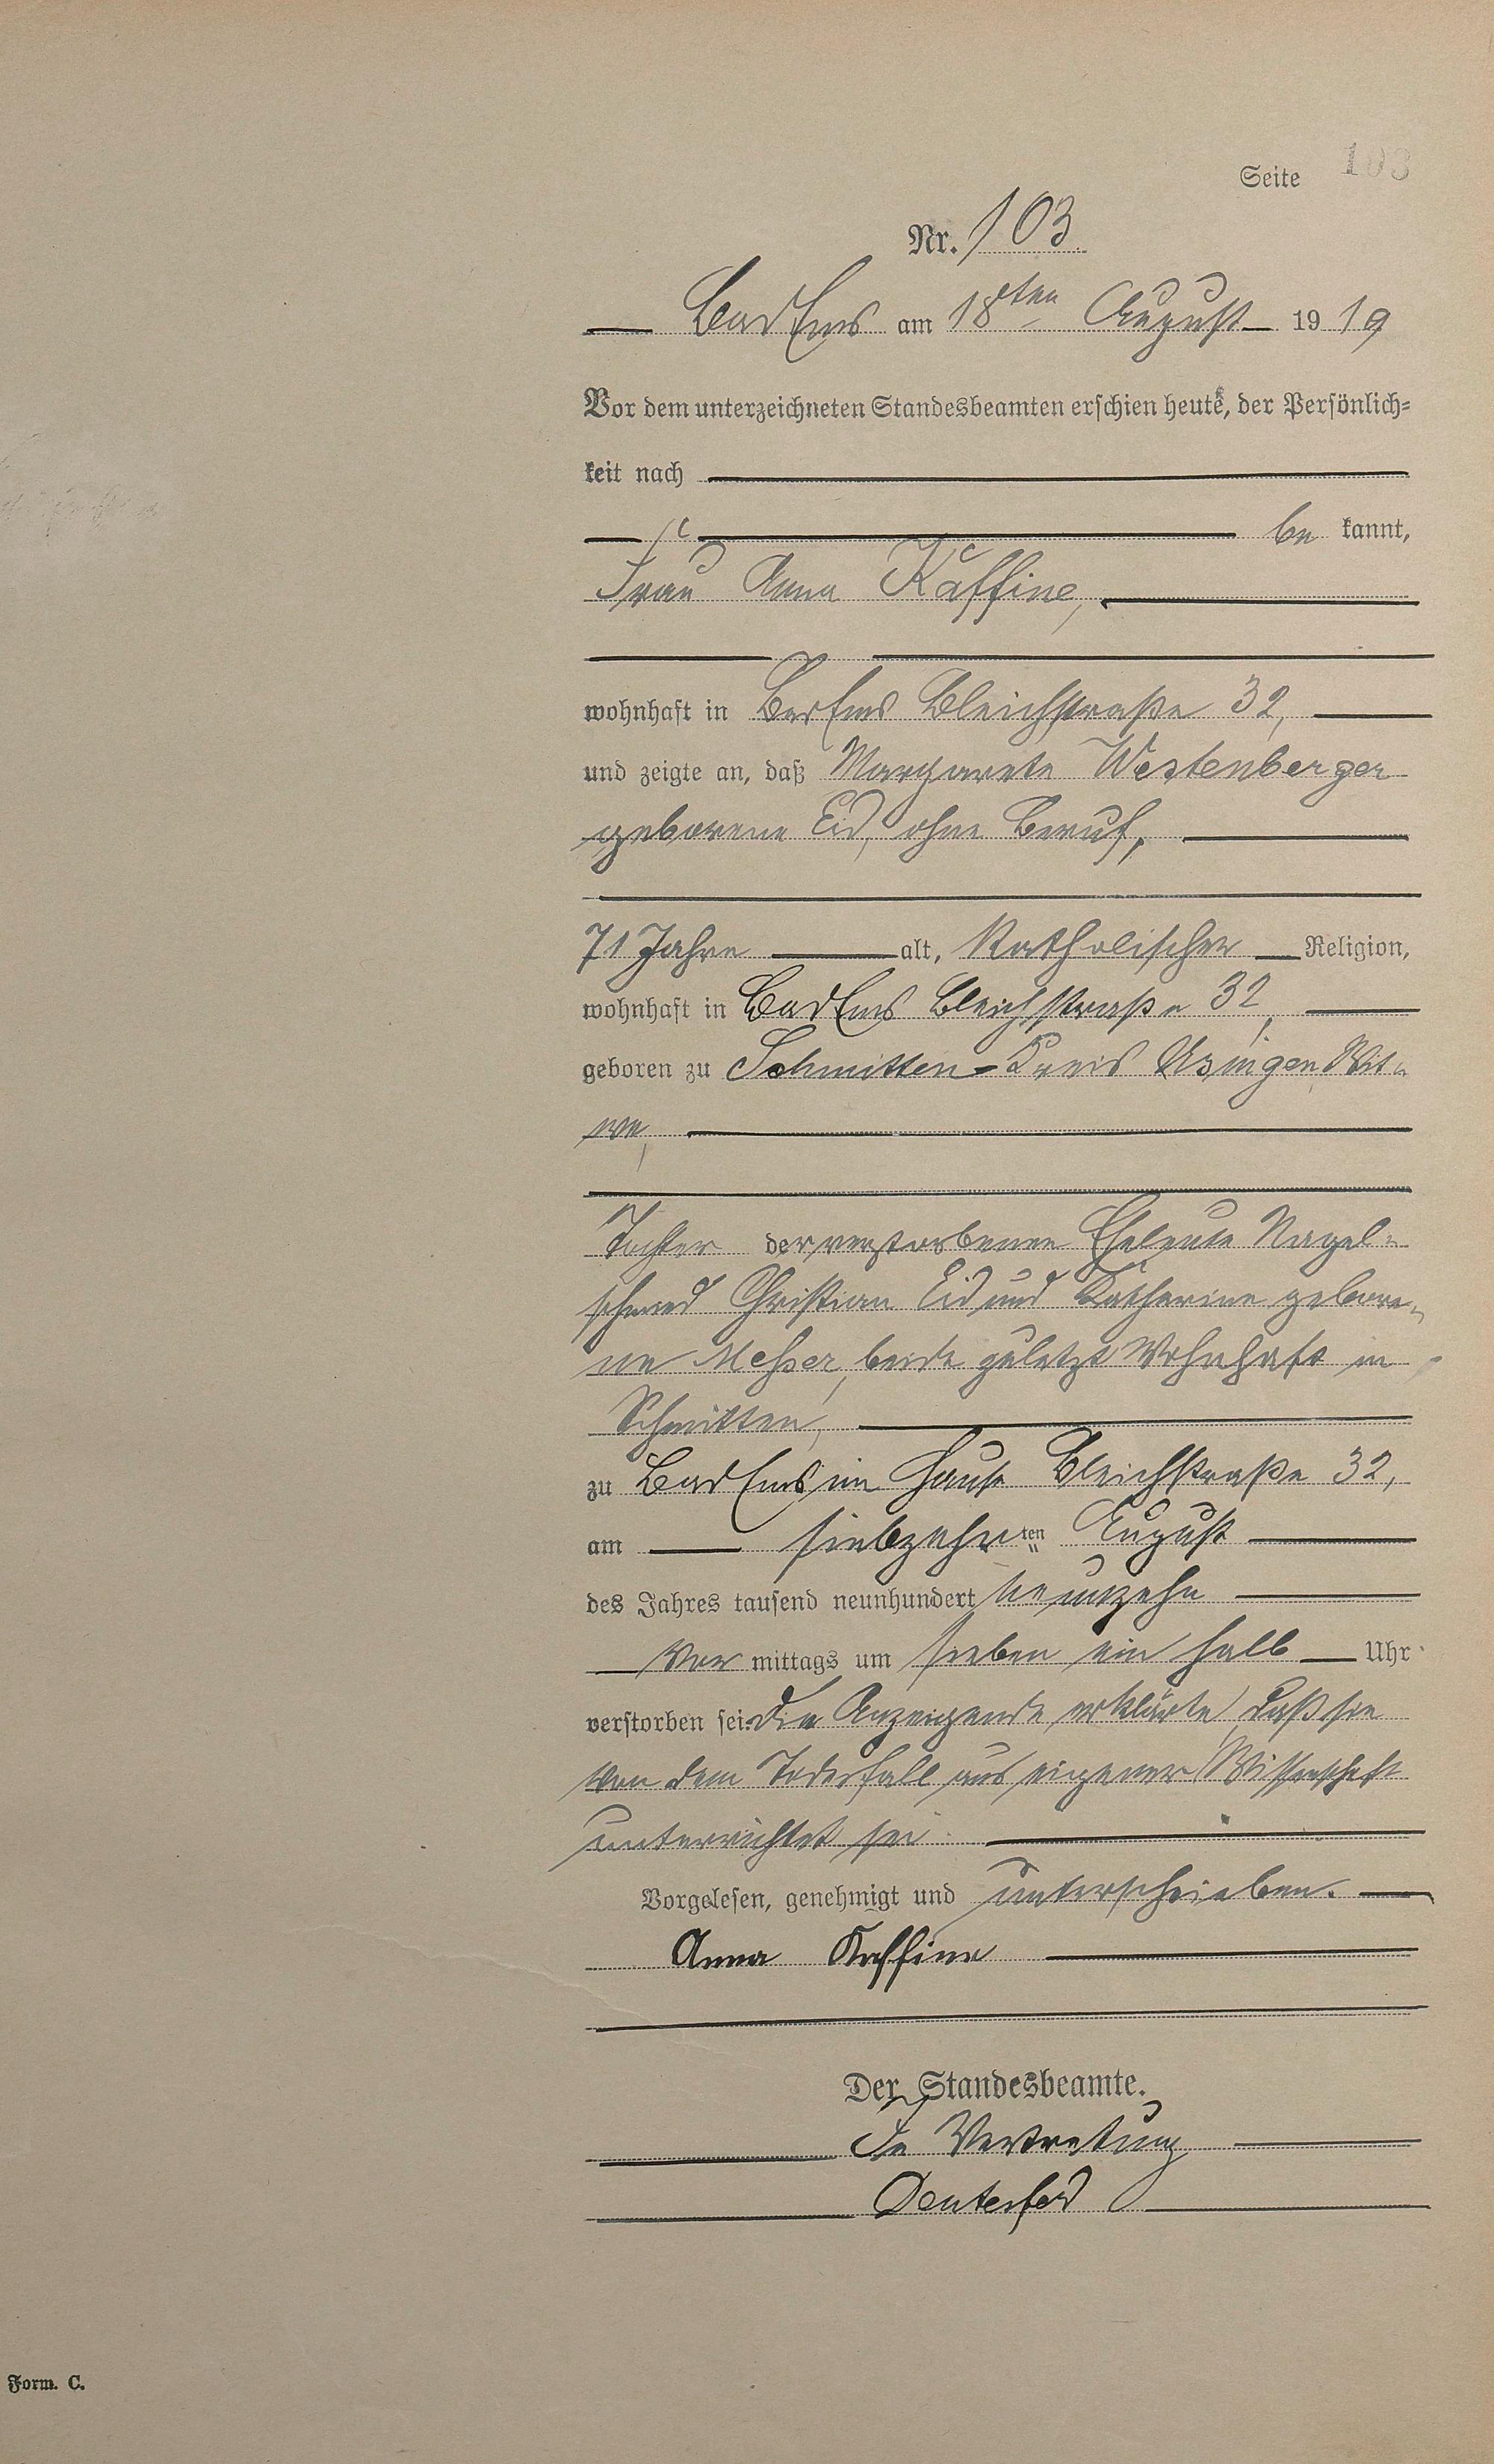 Seite 103
Nr. 103
Bad Ems am 18ten August 1919
Vor dem unterzeichneten Standesbeamten erschien heute, der Persönlich=
keit nach
be kannt,
Frau Anna Kaffine,
wohnhaft in Bad Ems Bleichstraße 32,
und zeigte an, daß Margarete Westenberger
geborene Eid, ohne Beruf,
71 Jahre alt, Katholischer Religion,
wohnhaft in Bad Ems Bleichstraße 32,
geboren zu Schmitten-Kreis Usingen Wit-
we,
Tochter der verstorbenen Eheleute Nagel-
schmied Christian Eid und Katherine gebore-
ne Meßer, beide zuletzt Wohnhaft in
Schmitten,
zu Bad Ems im Hause Bleichstraße 32,
am siebzehnten August
des Jahres tausend neunhundert neunzehn
Vor mittags um sieben ein halb Uhr
verstorben sei. Die Anzeigende erklärte, daß sie
von dem Todesfall aus eigener Wissenschaft
unterrichtet sei.
Vorgelesen, genehmigt und unterschrieben.
Anna Kaffine
Der Standesbeamte.
In Vertretung
Form. C.